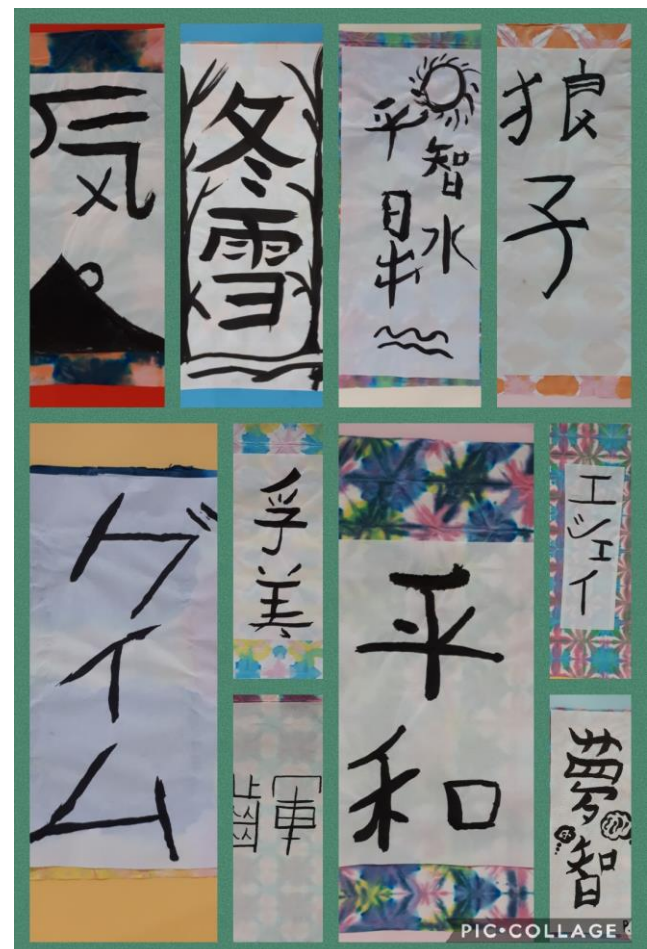 気
冬雪
智水
平日
狼子
グイム
孚美
平和
エシェイ
夢智
PIC•COLLAGE